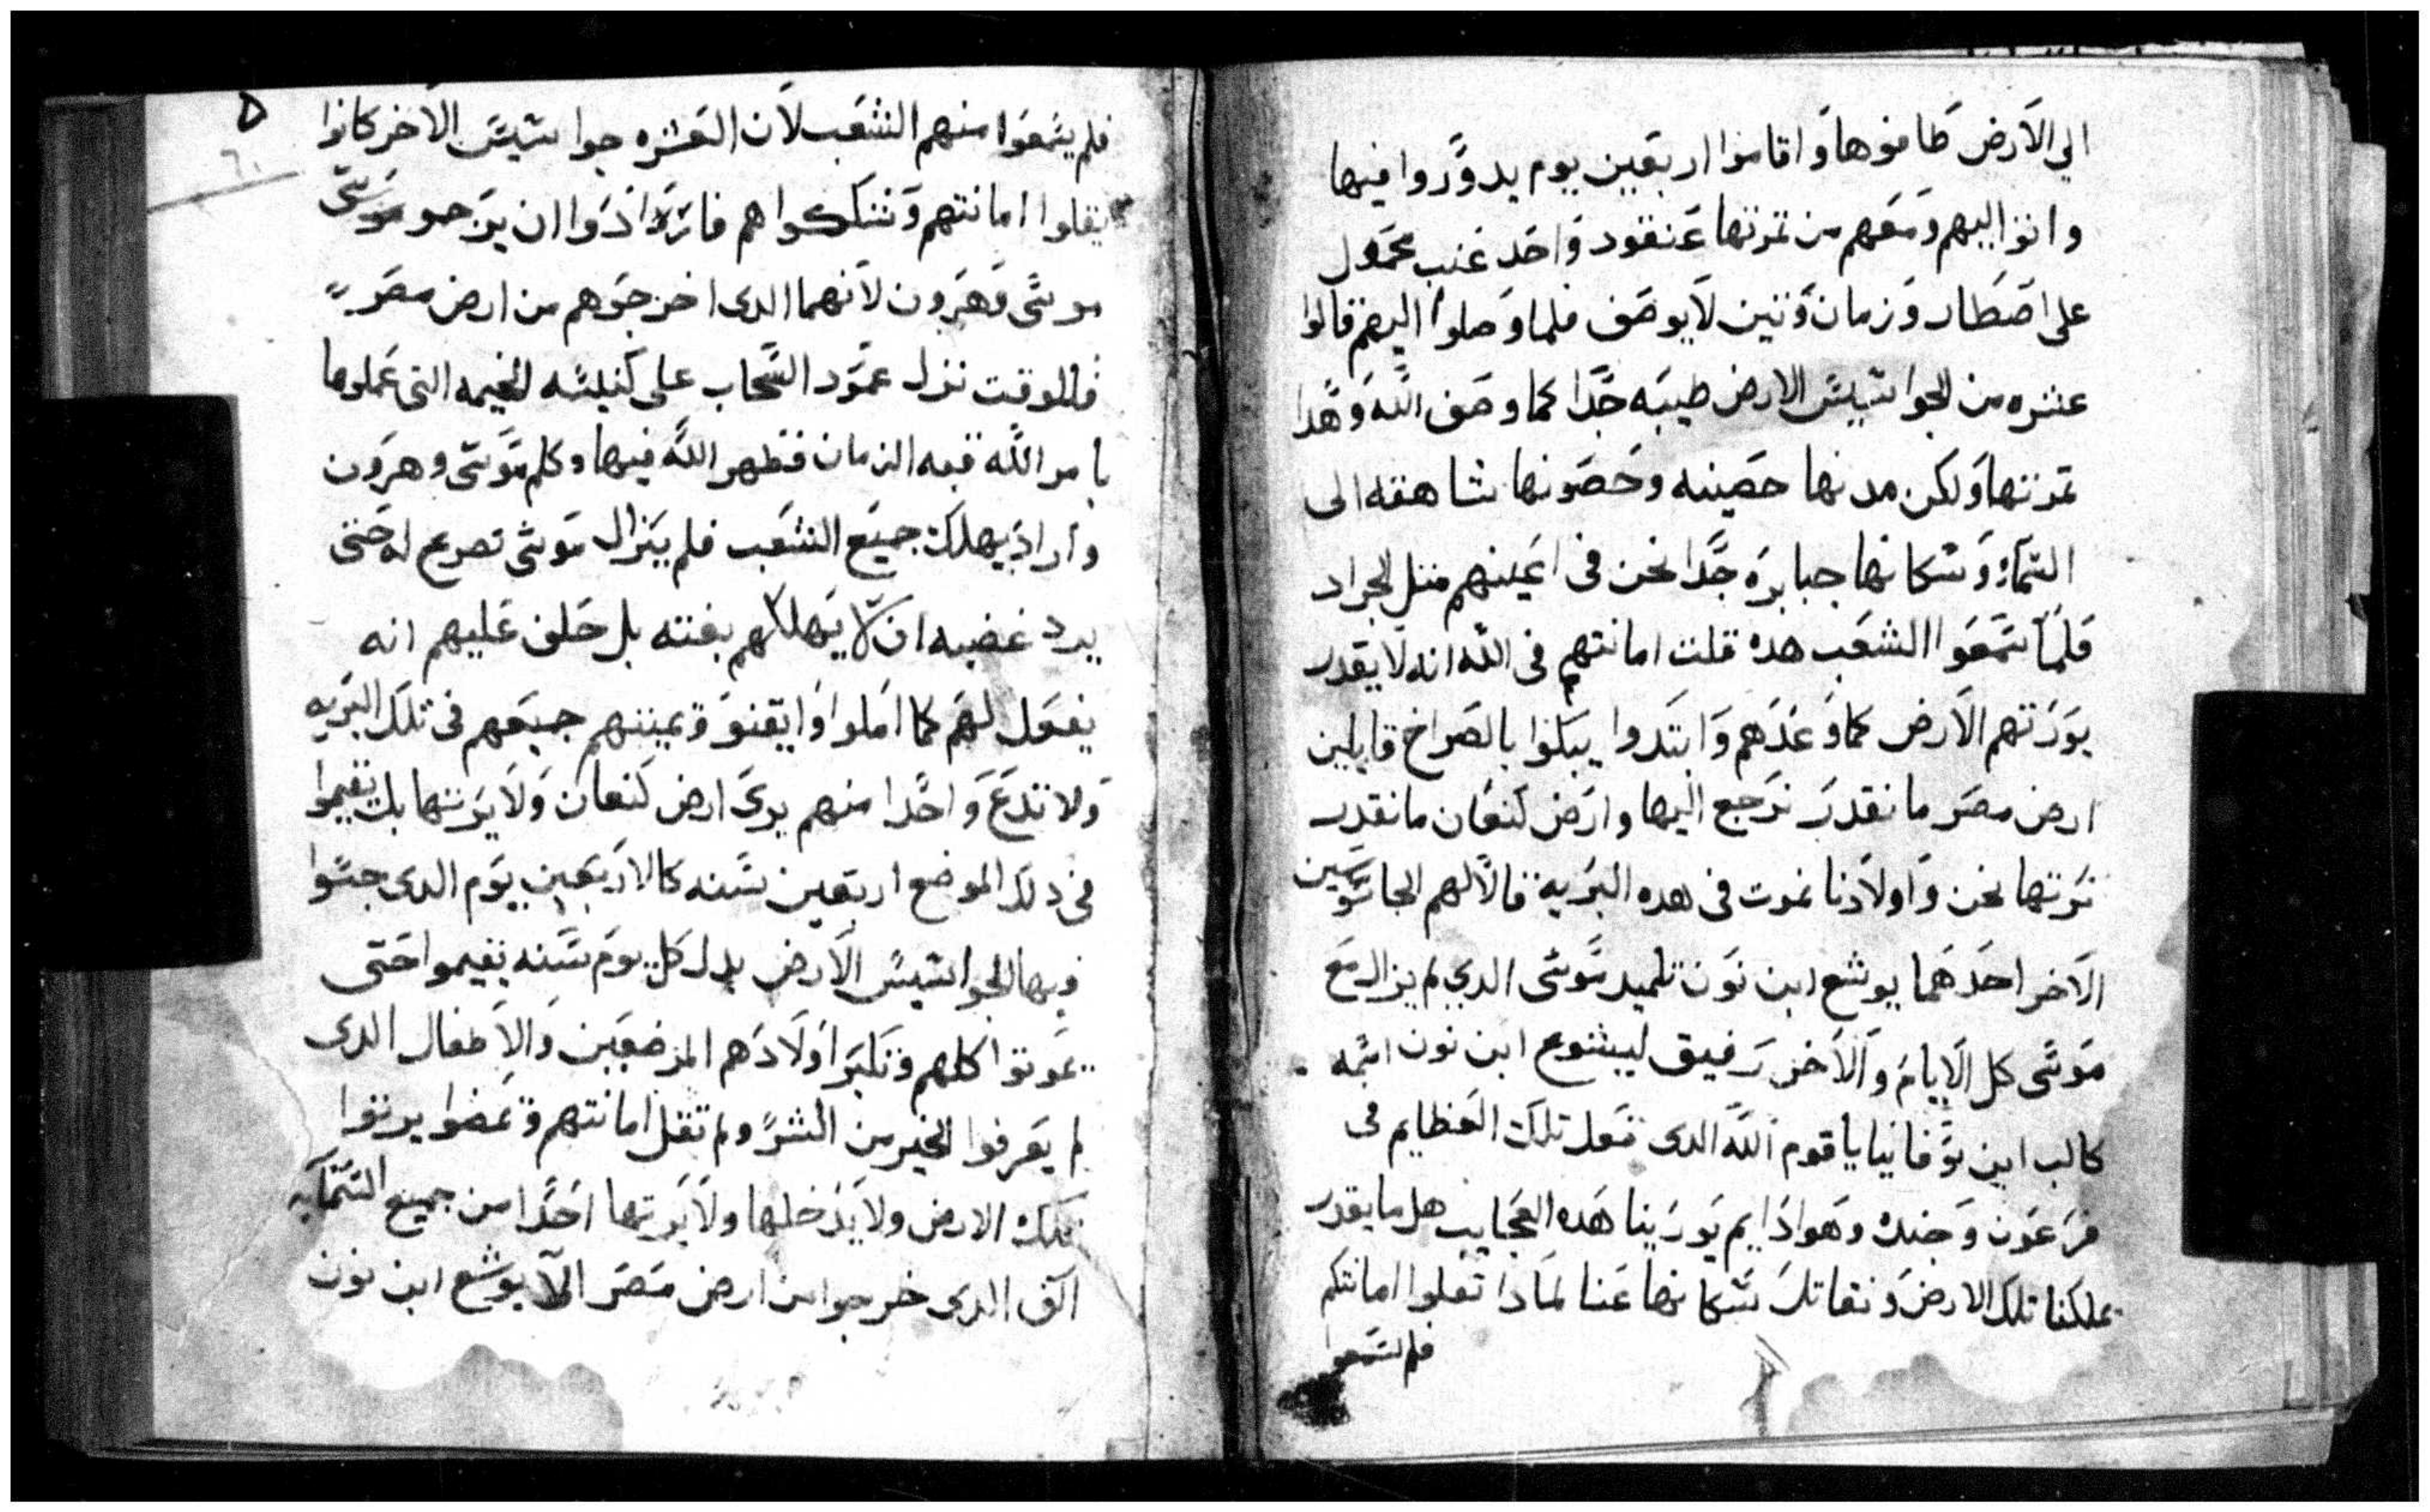 الي الارض طافوها واقاموا اربعين يوم يدوروا فيها
واتوا اليهم ومعهم من تمرتها عنقود واحد عنب محمول
على اصطار وزمان وتين لا يوصف فلما وصلوا اليهم قالوا
عشره من الجواسيس الارض طيبه جدا كما وصف الله وهدا
تمرتها ولكن مدنها حصينه وحصونها شاهقه الى
السماء وسكانها جبابره جدا نحن في اعينهم متل الجراد
فلما سمعوا الشعب هده قلت امانتهم في الله انه لا يقدر
يورتهم الارض كما وعدهم وابتدوا يبكوا بالصراخ قايلين
ارض مصر ما نقدر نرجع اليها وارض كنعان ما نقدر
نرتها نحن واولادنا نموت في هده البريه قالا لهم الجاسوسين
الاخر احدهما يوشع ابن نون تلميد موسى الدي لم يزال مع
موسى كل الايام والاخر رفيق ليشوع ابن نون اسمه
كالب ابن يوفانيا يا قوم الله الدى فعل تلك العظايم فى
فرعون وجنده وهوا دايم يورينا هده العجايب هل ما يقدر
يملكنا تلك الارض ونقاتل سكانها عنا لمادا تقلوا امانتكم
فلم يسمعوا
٥
٦٠
فلم يسمعوا منهم الشعب لان العشره جواسيس الاخر كانوا
يقلوا امانتهم وتشككوا هم فارادوا ان يرجمو موسى
موسى وهرون لانهما الدى اخرجوهم من ارض مصر
فللوقت نزل عمود السحاب على كنيسه الخيمه التى عملوها
بامر الله قبه الزمان فظهر الله فيها وكلم موسى وهرون
واراد يهلك جميع الشعب فلم يزال موسى تضرع له حتى
يرد غضبه ان لا يهلكهم بغته بل حلف عليهم انه
يفعل لهم كما املوا وايقنو ويميتهم جميعهم فى تلك البريه
ولا تدع واحدا منهم يرى ارض كنعان ولا يرتها بل يقيموا
فى دلك الموضع اربعين سنه كالاربعين يوم الدى جسوا
فيها الجواسيس الارض بدل كل يوم سنه يقيموا حتى
يموتوا كلهم وتكبر اولادهم المرضعين والاطفال الدى
لم يعرفوا الخير من الشر ولم تقل امانتهم ويمضوا يرتوا
تلك الارض ولا يدخلها ولا يرتها احدا من جميع الستمايه
الف الدى خرجوا من ارض مصر الا يوشع ابن نون